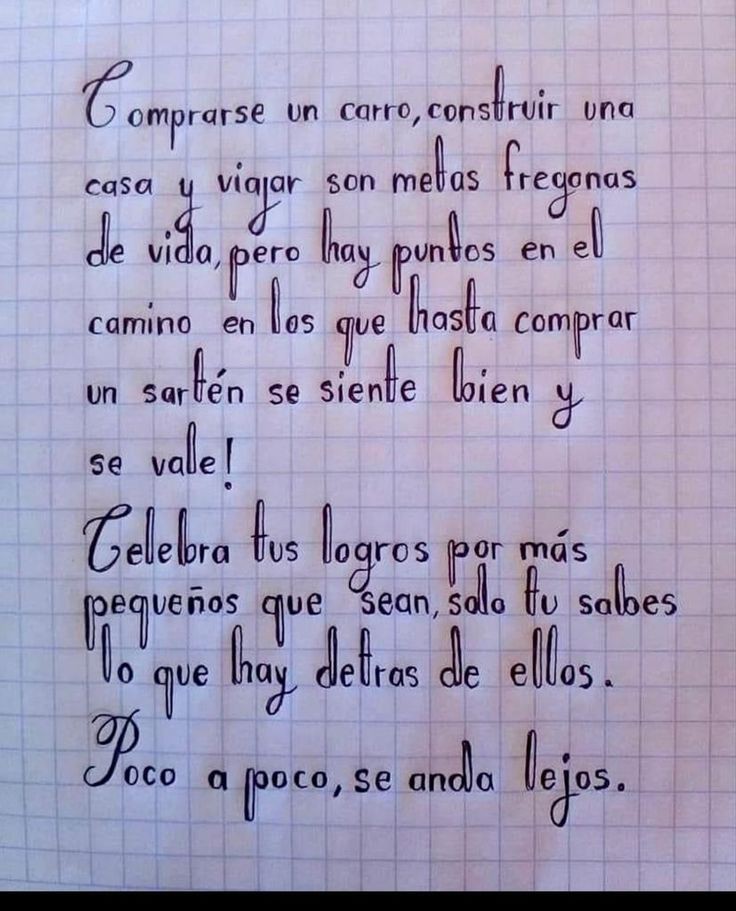 Comprarse un carro, construir una
casa y viajar son metas fregonas
de vida, pero hay puntos en el
camino en los que hasta comprar
un sartén se siente bien y
se vale!
Celebra tus logros por más
pequeños que sean, solo tu sabes
lo que hay detras de ellos.
Poco a poco, se anda lejos.